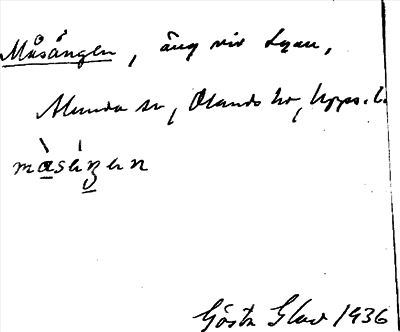 Måsängen, äng vid Lyan,
Alunda sn, Olands hd, Upps. l.
màsáŋen
Gösta Glad 1936